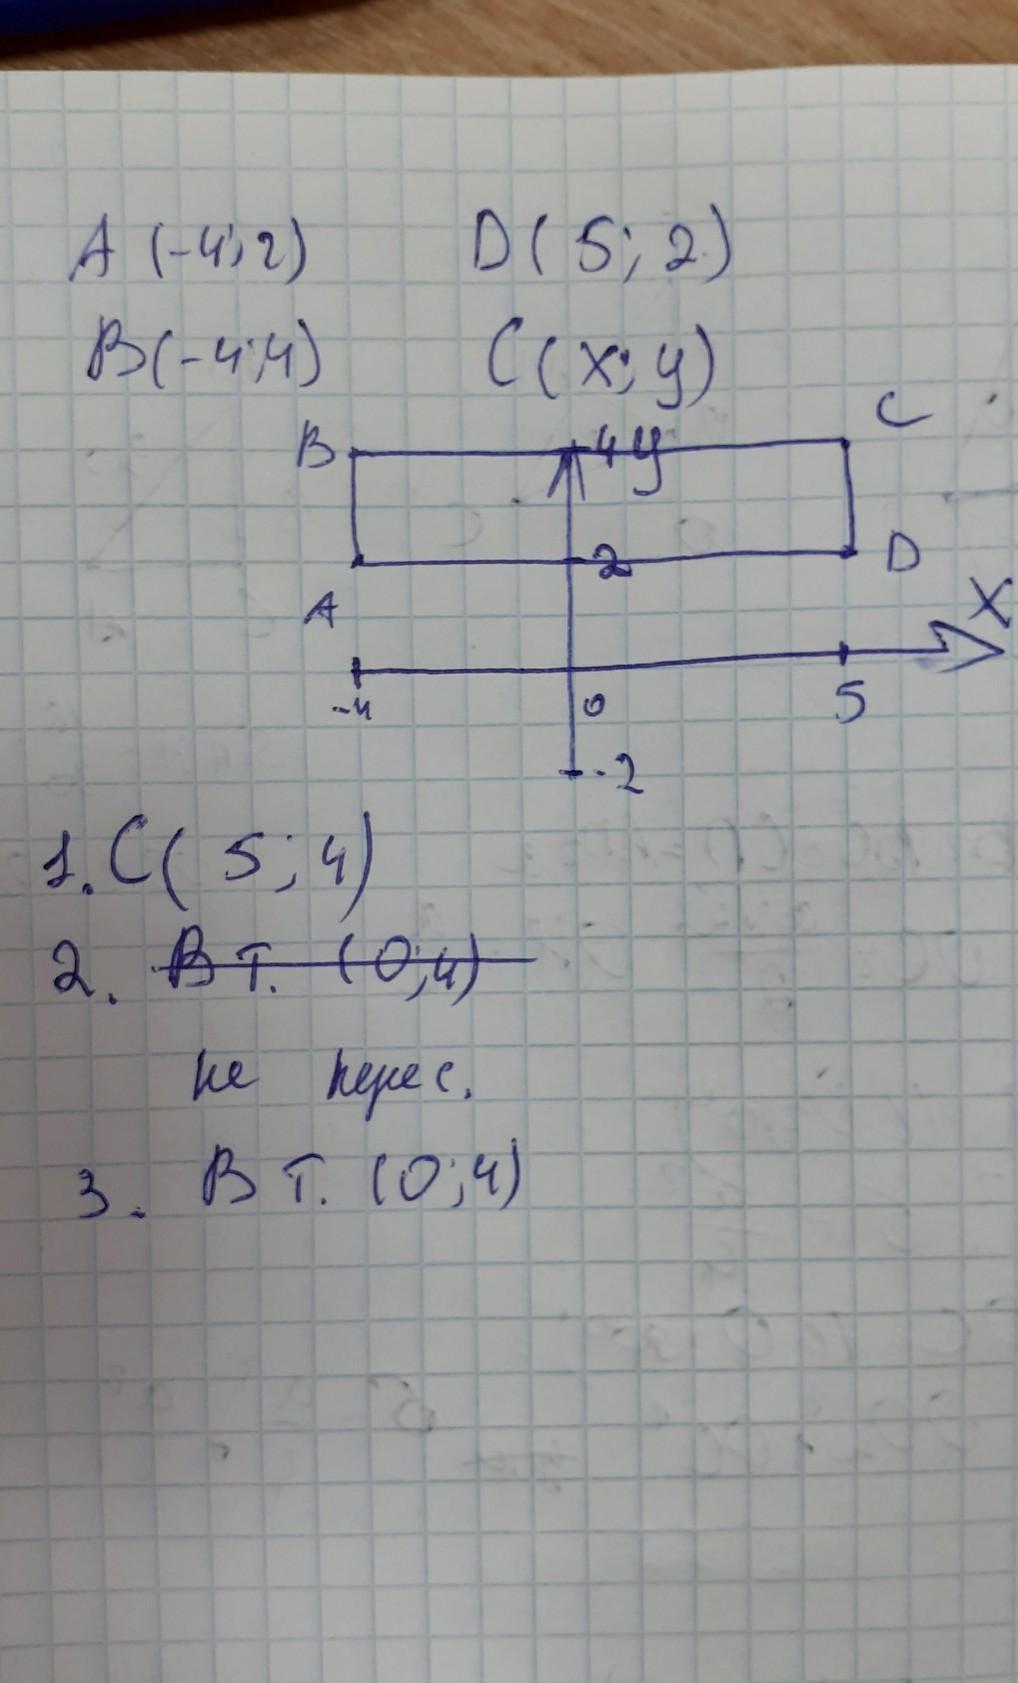 A (-4; 2) D( 5; 2)
B(-4; 4) C( x; y)
B 4 y C
2 D
A X
-4 0 5
-2
1. C( 5; 4)
2. В т. (0; 4)
не перес.
3. В т. (0; 4)